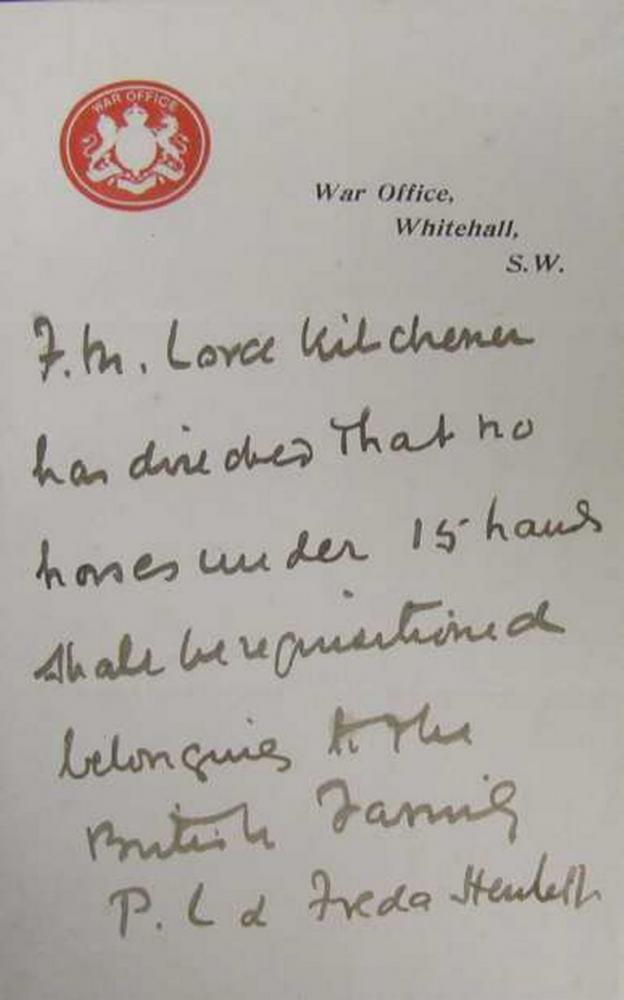 WAR OFFICE
War Office,
Whitehall,
S.W.
F.M. Lord Kitchener
has directed that no
horses under 15 hands
shall be requisitioned
belonging to the
British Family
P. L & Freda Hewlett